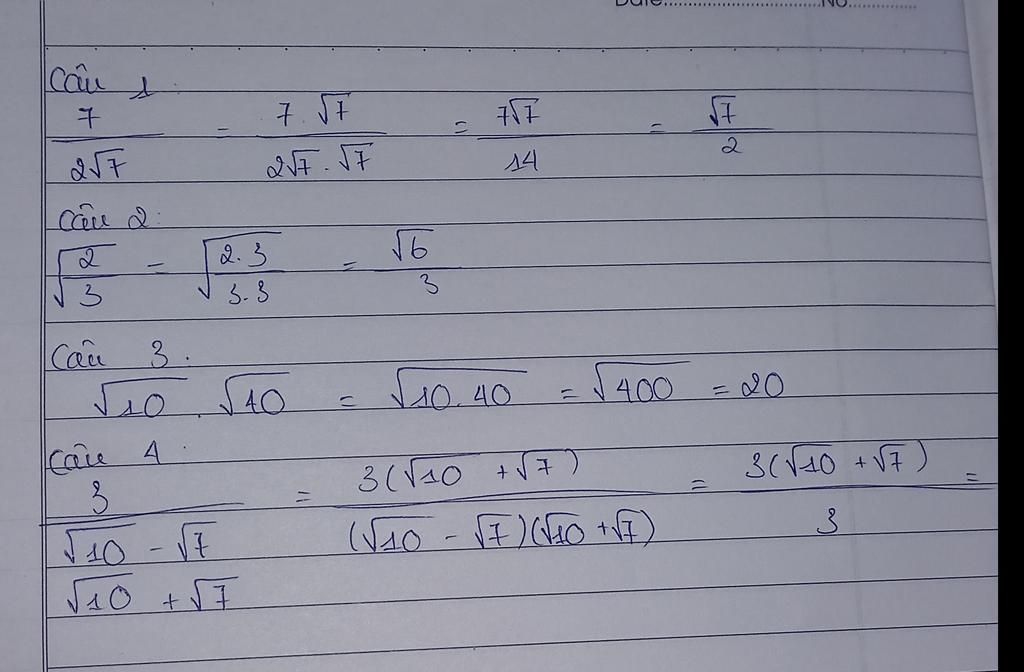 Date........................No...............
Câu 1:
7/(2√7) = (7.√7)/(2√7.√7) = 7√7/14 = √7/2
Câu 2:
√(2/3) = √(2.3/3.3) = √6/3
Câu 3.
√10 . √40 = √(10.40) = √400 = 20
Câu 4:
3/(√10 - √7) = 3(√10 + √7)/((√10 - √7)(√10 + √7)) = 3(√10 + √7)/3 =
√10 + √7